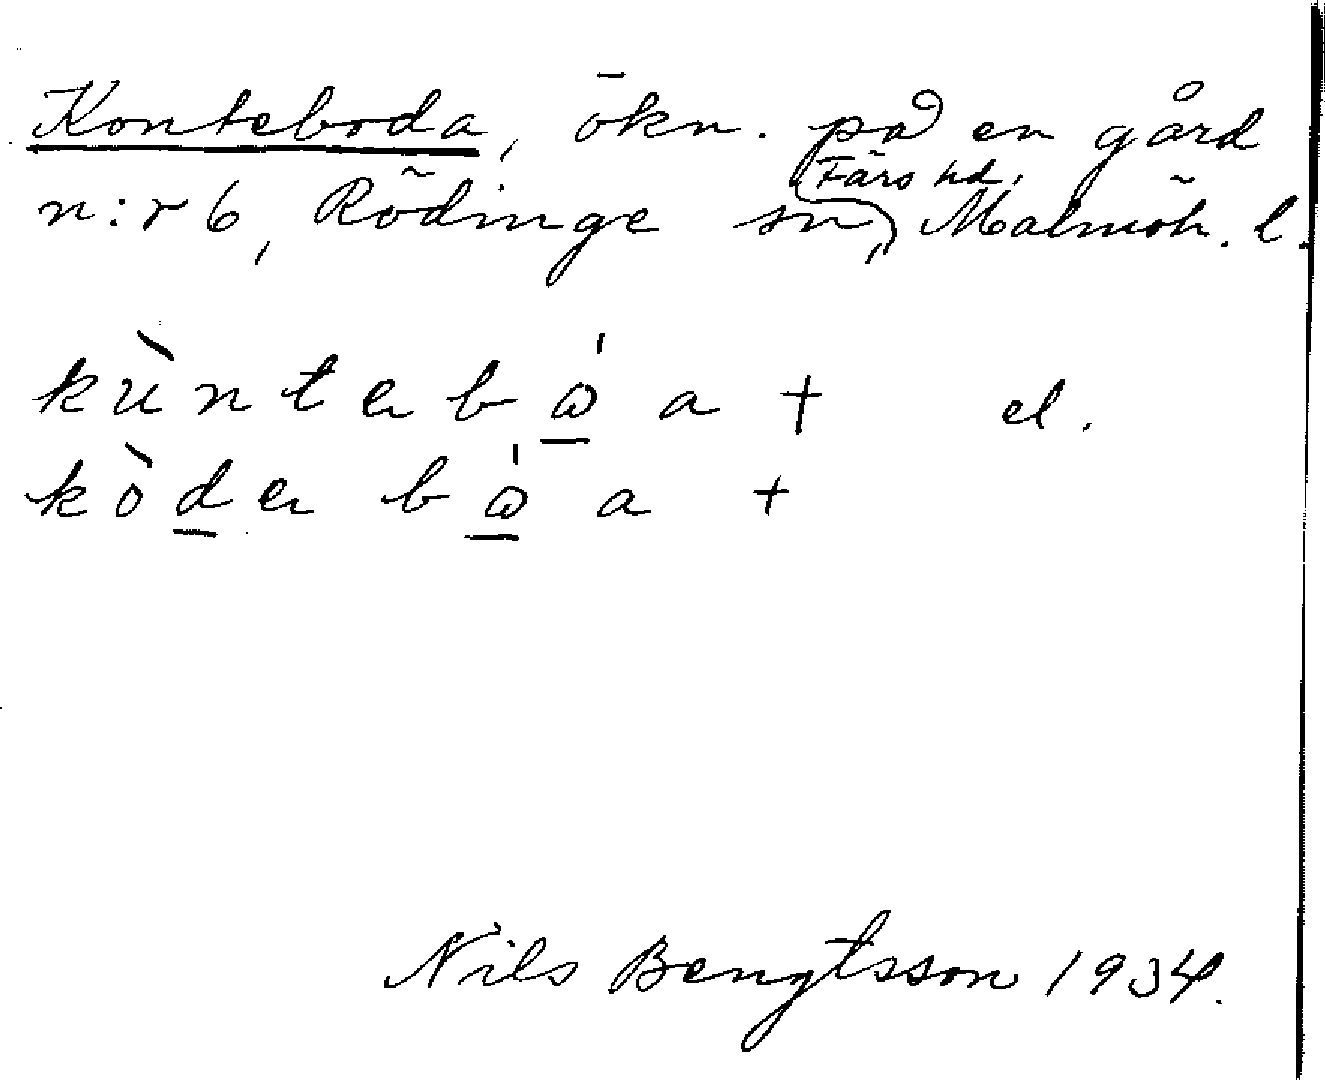 Konteboda, ökn. på en gård
n:r 6, Rödinge sn, Färs hd, Malmöh. l.
kùntebǫ́a + el.
kòdebǫ́a +
Nils Bengtsson 1934.